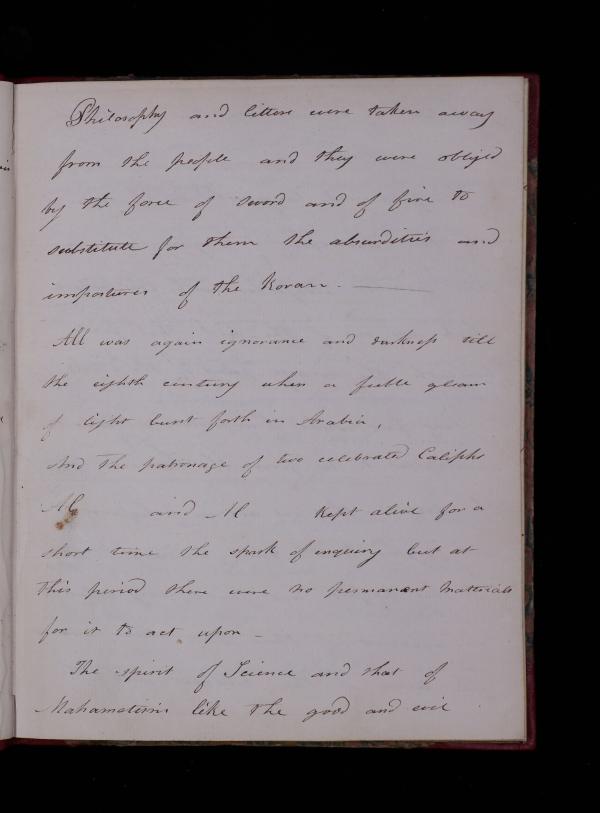 Philosophy and letters were taken away
from the people and they were obliged
by the force of sword and of fire to
substitute for them the absurdities and
impostures of the Koran. —
All was again ignorance and darkness till
the eighth century when a feeble gleam
of light burst forth in Arabia,
And the patronage of two celebrated Caliphs
Al and Al kept alive for a
short time the spark of enquiry but at
this period there were no permanent materials
for it to act upon –
The spirit of Science and that of
Mahometism like the good and evil